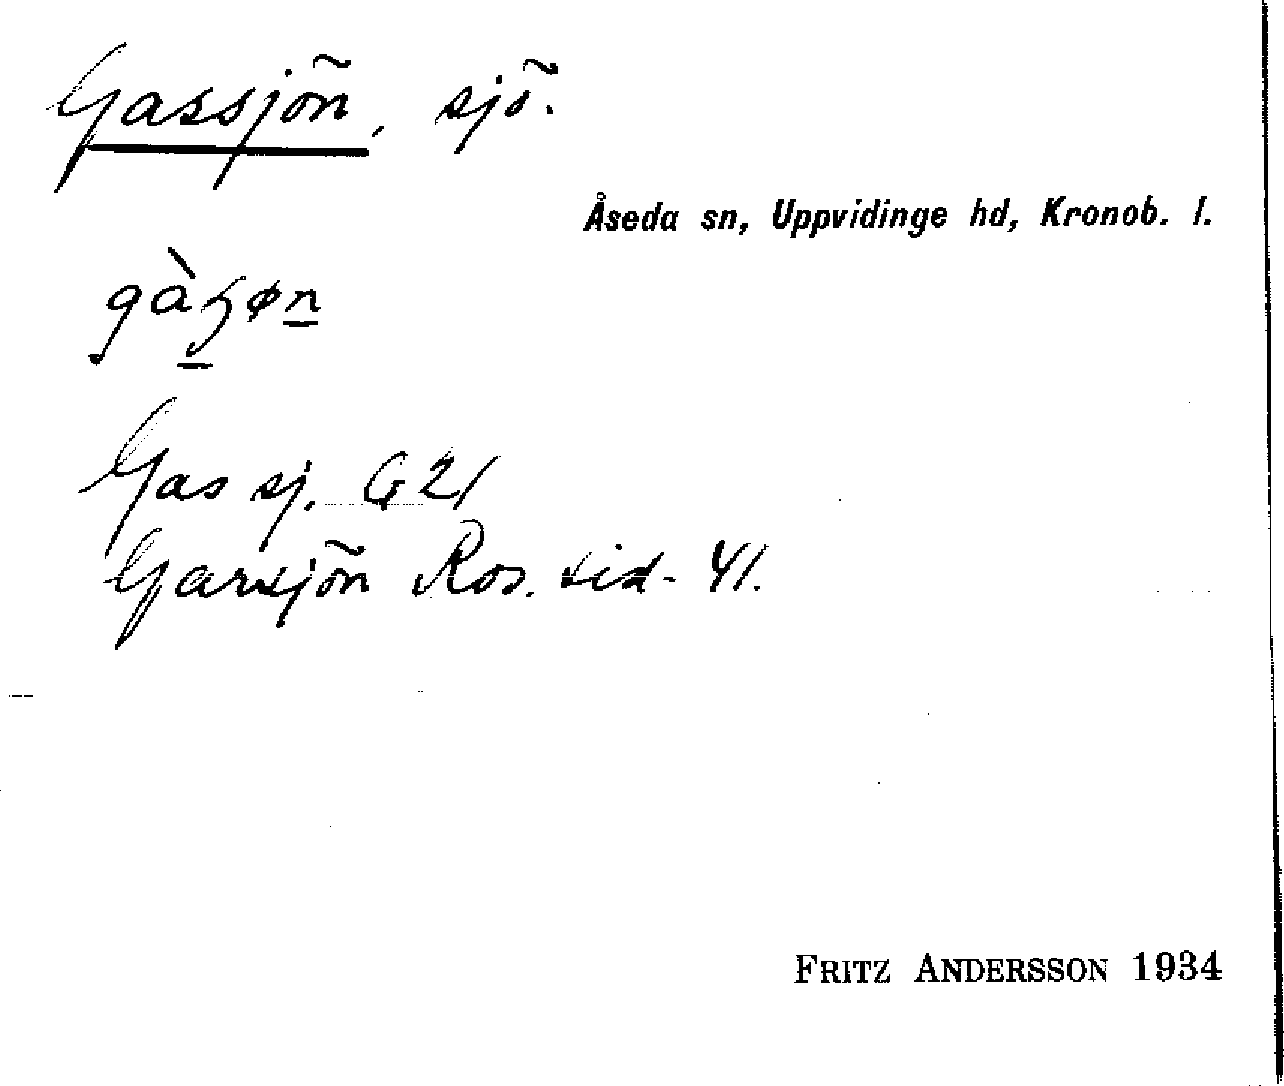 Gassjön, sjö.
Åseda sn, Uppvidinge hd, Kronob. l.
Gas sj. G 21
Garsjön Ros. sid. 41.
FRITZ ANDERSSON 1934